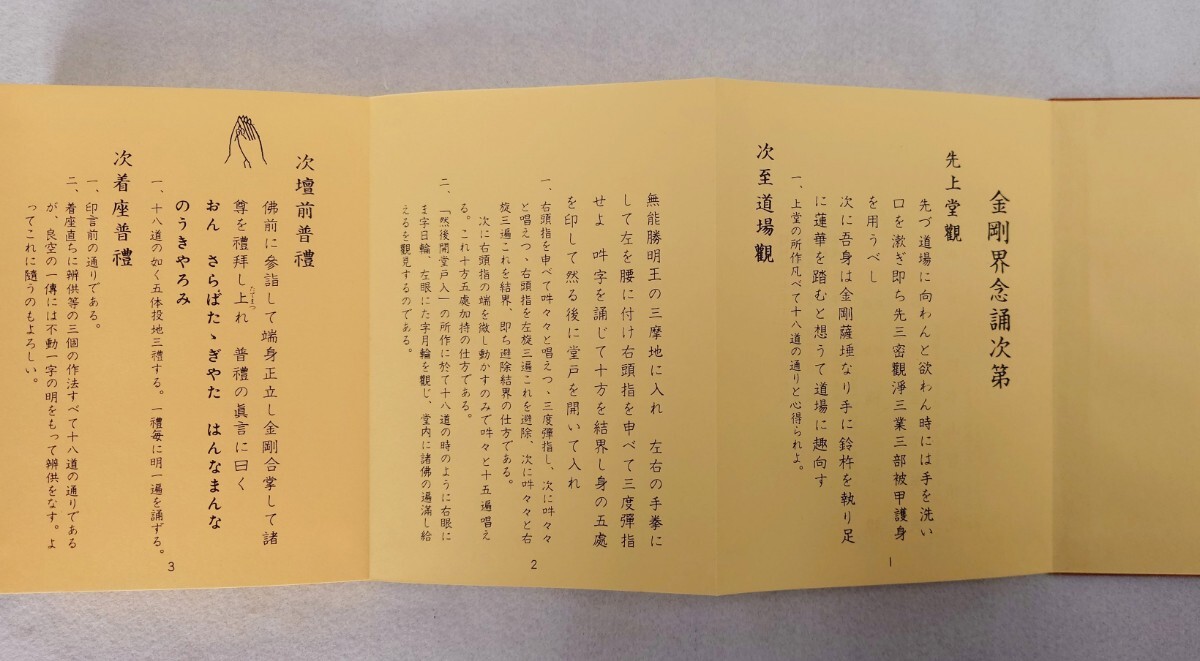 金剛界念誦次第
先上堂觀
先づ道場に向わんと欲わん時には手を洗い
口を漱ぎ即ち先三密觀淨三業三部被甲護身
を用うべし
次に吾身は金剛薩埵なり手に鈴杵を執り足
に蓮華を踏むと想うて道場に趣向す
一、上堂の所作凡べて十八道の通りと心得られよ。
1
次至道場觀
無能勝明王の三摩地に入れ 左右の手拳に
して左を腰に付け右頭指を申べて三度彈指
せよ 吽字を誦じて十方を結界し身の五處
を印して然る後に堂戸を開いて入れ
一、右頭指を申べて吽々々と唱えつゝ三度彈指し、次に吽々々
と唱えつゝ右頭指を左旋三遍これを避除、次に吽々々と右
旋三遍これを結界、即ち避除結界の仕方である。
次に右頭指の端を微し動かすのみで吽々と十五遍唱え
る。これ十方五處加持の仕方である。
二、「然後開堂戸入」の所作に於て十八道の時のように右眼に
ま字日輪、左眼にた字月輪を觀じ、堂内に諸佛の遍滿し給
えるを觀見するのである。
2
次壇前普禮
佛前に參詣して端身正立し金剛合掌して諸
尊を禮拜し上れ 普禮の眞言に曰く
たてまつ
おん さらばたゝぎやた はんなまんな
のうきやろみ
一、十八道の如く五体投地三禮する。一禮每に明一遍を誦ずる。
次着座普禮
一、印言前の通りである。
二、着座直ちに辨供等の三個の作法すべて十八道の通りである
が、良空の一傳には不動一字の明をもって辨供をなす。よ
ってこれに隨うのもよろしい。
3